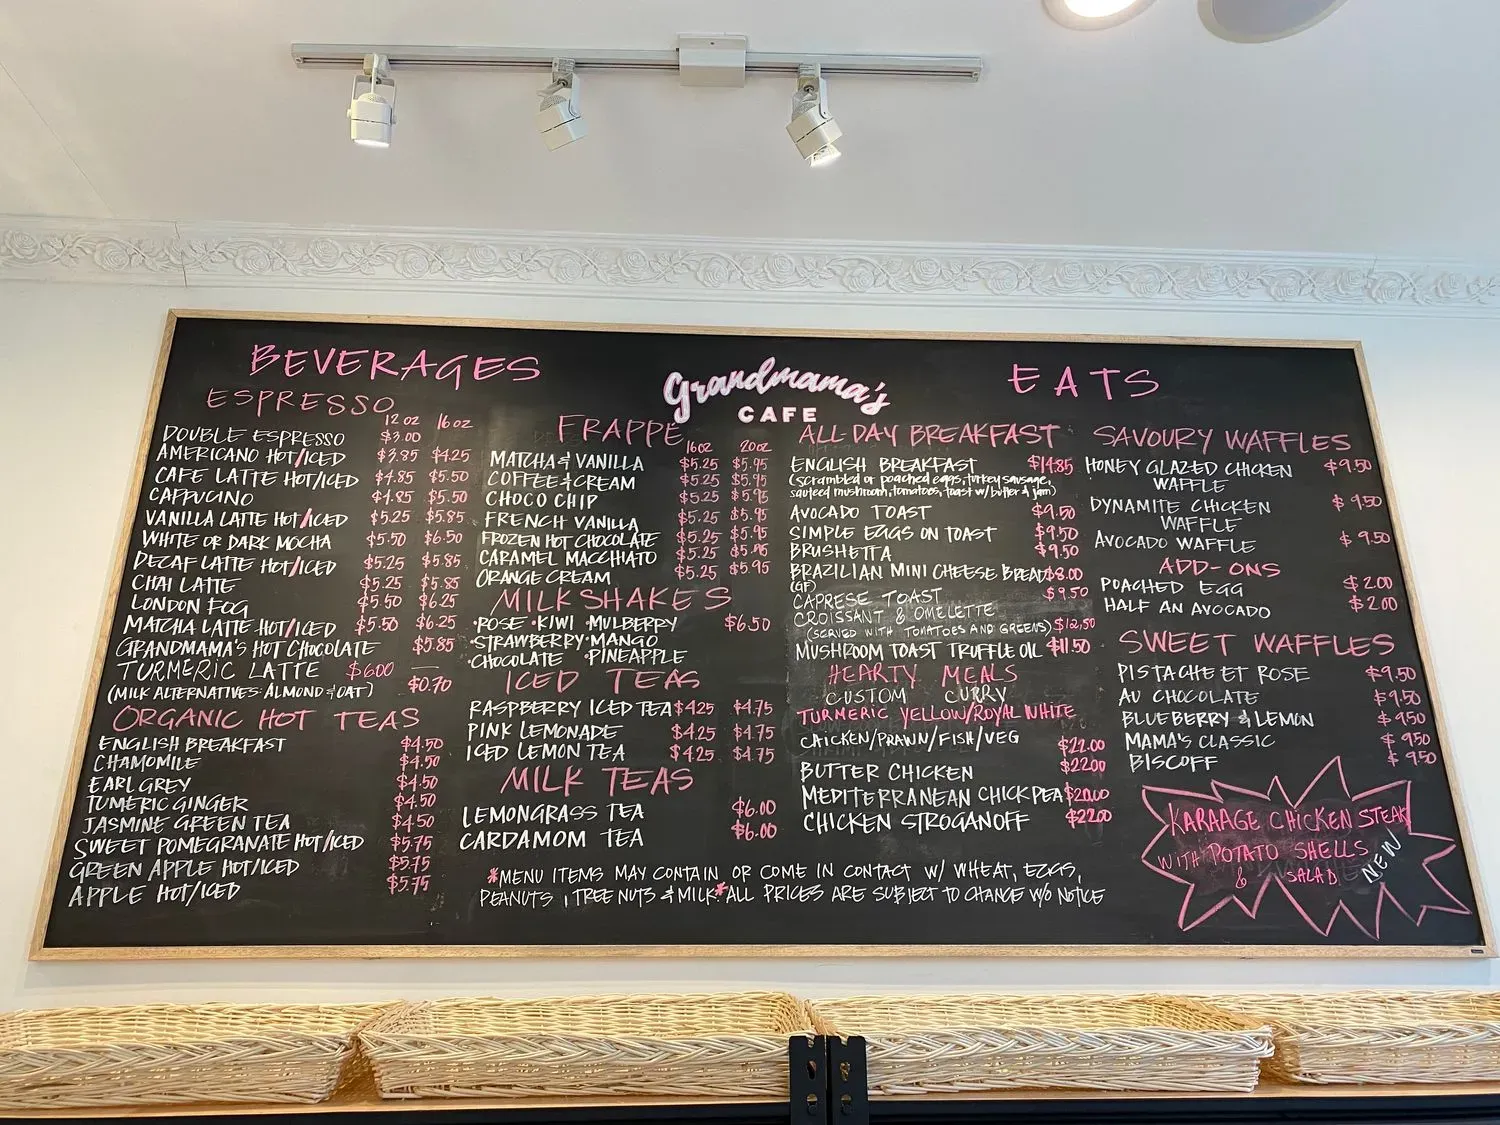 BEVERAGES
ESPRESSO
12 oz 16 oz
DOUBLE ESPRESSO $3.00
AMERICANO HOT/ICED $3.85 $4.25
CAFE LATTE HOT/ICED $4.85 $5.50
CAPPUCINO $4.85 $5.50
VANILLA LATTE HOT/ICED $5.25 $5.85
WHITE OR DARK MOCHA $5.50 $6.50
DECAF LATTE HOT/ICED $5.25 $5.85
CHAI LATTE $5.25 $5.85
LONDON FOG $5.50 $6.25
MATCHA LATTE HOT/ICED $5.50 $6.25
GRANDMAMA'S HOT CHOCOLATE $5.85
TURMERIC LATTE $6.00 —
(MILK ALTERNATIVES: ALMOND & OAT) $0.70
ORGANIC HOT TEAS
ENGLISH BREAKFAST $4.50
CHAMOMILE $4.50
EARL GREY $4.50
TUMERIC GINGER $4.50
JASMINE GREEN TEA $4.50
SWEET POMEGRANATE HOT/ICED $5.75
GREEN APPLE HOT/ICED $5.75
APPLE HOT/ICED $5.75
Grandmama's
CAFE
FRAPPE
16oz 20oz
MATCHA & VANILLA $5.25 $5.95
COFFEE & CREAM $5.25 $5.95
CHOCO CHIP $5.25 $5.95
FRENCH VANILLA $5.25 $5.95
FROZEN HOT CHOCOLATE $5.25 $5.95
CARAMEL MACCHIATO $5.25 $5.95
ORANGE CREAM $5.25 $5.95
MILKSHAKES
•ROSE •KIWI •MULBERRY $6.50
•STRAWBERRY •MANGO
•CHOCOLATE •PINEAPPLE
ICED TEAS
RASPBERRY ICED TEA $4.25 $4.75
PINK LEMONADE $4.25 $4.75
ICED LEMON TEA $4.25 $4.75
MILK TEAS
LEMONGRASS TEA $6.00
CARDAMOM TEA $6.00
EATS
ALL DAY BREAKFAST
ENGLISH BREAKFAST $14.85
(scrambled or poached eggs, turkey sausage,
sauteed mushroom, tomatoes, toast w/ butter & jam)
AVOCADO TOAST $9.50
SIMPLE EGGS ON TOAST $9.50
BRUSHETTA $9.50
BRAZILIAN MINI CHEESE BREAD $8.00
(GF)
CAPRESE TOAST $9.50
CROISSANT & OMELETTE
(SERVED WITH TOMATOES AND GREENS) $12.50
MUSHROOM TOAST TRUFFLE OIL $11.50
HEARTY MEALS
CUSTOM CURRY
TURMERIC YELLOW/ROYAL WHITE
CHICKEN/PRAWN/FISH/VEG $22.00
BUTTER CHICKEN $22.00
MEDITERRANEAN CHICKPEA $20.00
CHICKEN STROGANOFF $22.00
SAVOURY WAFFLES
HONEY GLAZED CHICKEN $9.50
WAFFLE
DYNAMITE CHICKEN $9.50
WAFFLE
AVOCADO WAFFLE $9.50
ADD-ONS
POACHED EGG $2.00
HALF AN AVOCADO $2.00
SWEET WAFFLES
PISTACHE ET ROSE $9.50
AU CHOCOLATE $9.50
BLUEBERRY & LEMON $9.50
MAMA'S CLASSIC $9.50
BISCOFF $9.50
KARAAGE CHICKEN STEAK
WITH POTATO SHELLS
& SALAD
NEW
*MENU ITEMS MAY CONTAIN OR COME IN CONTACT W/ WHEAT, EGGS,
PEANUTS, TREE NUTS & MILK.*ALL PRICES ARE SUBJECT TO CHANGE W/O NOTICE